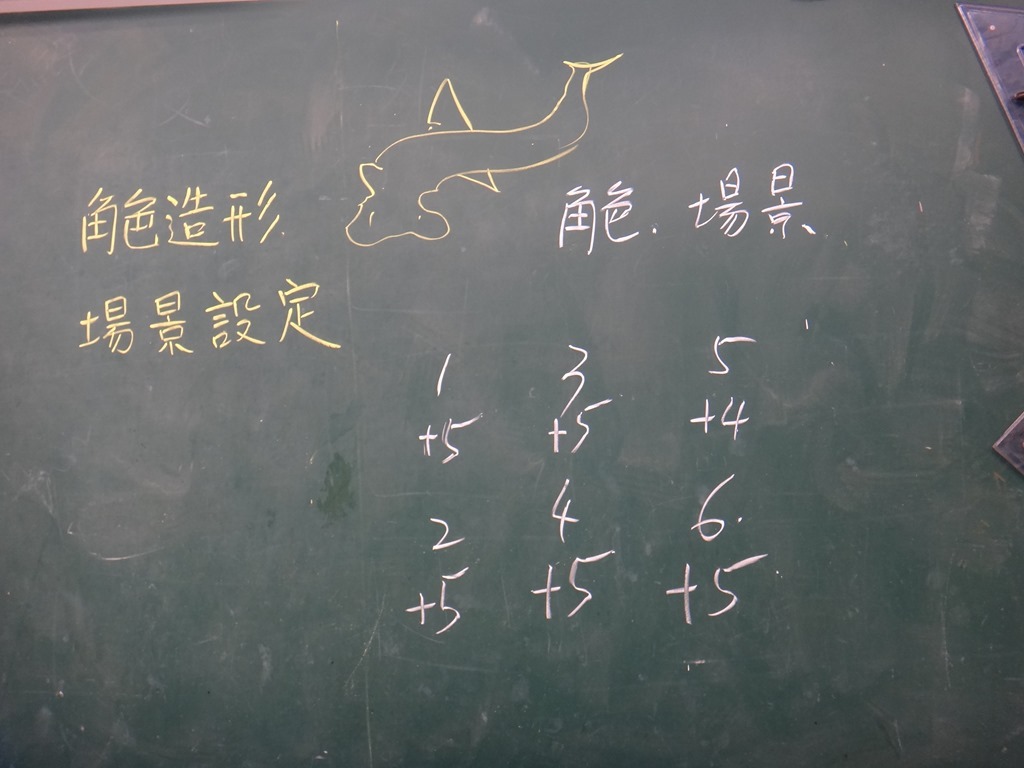 角色造形
場景設定
角色. 場景
1 3 5
+5 +5 +4
2 4 6.
+5 +5 +5